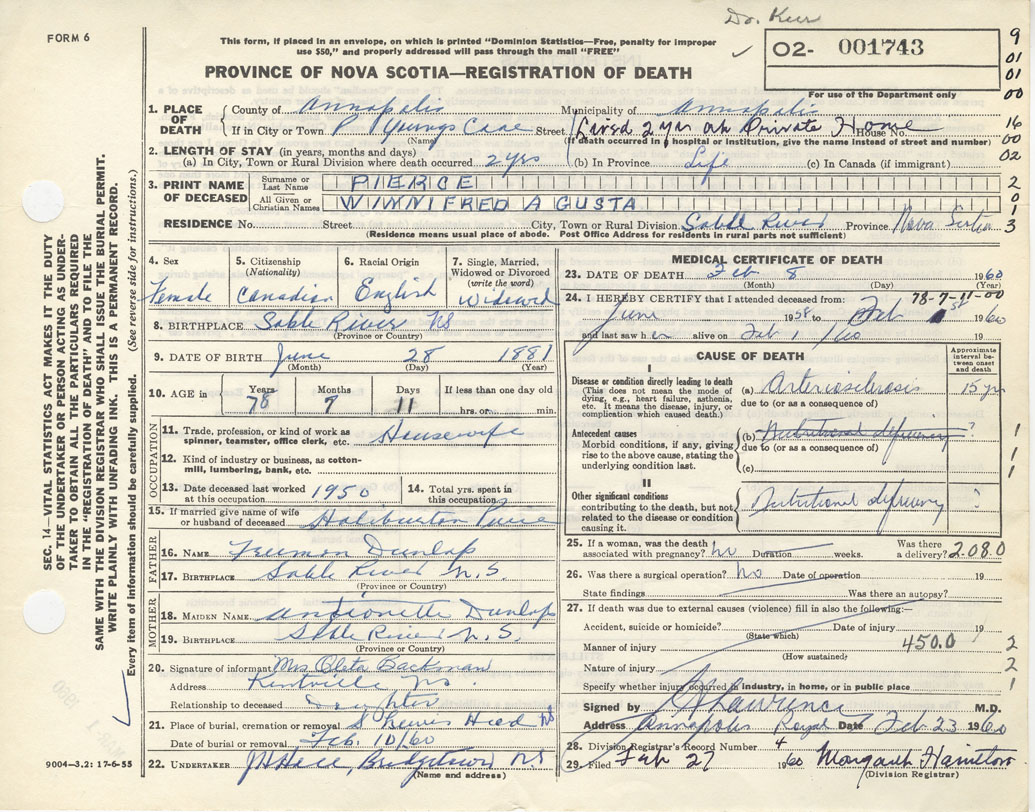 Dr. Kerr
FORM 6
This form, if placed in an envelope, on which is printed "Dominion Statistics—Free, penalty for improper
use $50," and properly addressed will pass through the mail "FREE"
✓
O2- 001743
For use of the Department only
PROVINCE OF NOVA SCOTIA—REGISTRATION OF DEATH
9
01
01
00
16
00
02
2
0
1
3
1. PLACE OF DEATH { County of Annapolis Municipality of Annapolis
If in City or Town Youngs Cove Street Lived 2 yrs at Private Home House No.
(Name) (If death occurred in hospital or institution, give the name instead of street and number)
2. LENGTH OF STAY (in years, months and days)
(a) In City, Town or Rural Division where death occurred 2 yrs (b) In Province Life (c) In Canada (if immigrant)
3. PRINT NAME OF DECEASED
Surname or Last Name PIERCE
All Given or Christian Names WINNIFRED A GUSTA
RESIDENCE No. Street City, Town or Rural Division Sable River Province Nova Scotia
(Residence means usual place of abode. Post Office Address for residents in rural parts not sufficient)
SEC. 14—VITAL STATISTICS ACT MAKES IT THE DUTY
OF THE UNDERTAKER OR PERSON ACTING AS UNDER-
TAKER TO OBTAIN ALL THE PARTICULARS REQUIRED
IN THE "REGISTRATION OF DEATH" AND TO FILE THE
SAME WITH THE DIVISION REGISTRAR WHO SHALL ISSUE THE BURIAL PERMIT.
WRITE PLAINLY WITH UNFADING INK. THIS IS A PERMANENT RECORD.
Every item of information should be carefully supplied. (See reverse side for instructions.)
4. Sex Female
5. Citizenship (Nationality) Canadian
6. Racial Origin English
7. Single, Married, Widowed or Divorced (write the word) Widowed
8. BIRTHPLACE Sable River NS
(Province or Country)
9. DATE OF BIRTH June 28 1881
(Month) (Day) (Year)
10. AGE in Years 78 Months 7 Days 11 If less than one day old hrs. or min.
OCCUPATION
11. Trade, profession, or kind of work as spinner, teamster, office clerk, etc. Housewife
12. Kind of industry or business, as cotton-mill, lumbering, bank, etc.
13. Date deceased last worked at this occupation 1950 14. Total yrs. spent in this occupation
15. If married give name of wife or husband of deceased Haliburton Pierce
FATHER
16. NAME Freeman Dunlap
17. BIRTHPLACE Sable River N.S.
(Province or Country)
MOTHER
18. MAIDEN NAME Antionette Dunlap
19. BIRTHPLACE Sable River N.S.
(Province or Country)
20. Signature of informant Mrs Oleta Backman
Address Kentville NS.
Relationship to deceased Daughter
21. Place of burial, cremation or removal Lewis Head NS
Date of burial or removal Feb. 10/60
22. UNDERTAKER Bridgetown NS
(Name and address)
9004—3.2: 17-6-55
MEDICAL CERTIFICATE OF DEATH
23. DATE OF DEATH Feb 8 1960
(Month) (Day) (Year)
78-7-11-00
24. I HEREBY CERTIFY that I attended deceased from:
June 1958 to Feb 1st 1960
and last saw her alive on Feb 1/60
CAUSE OF DEATH
Approximate interval between onset and death
I
Disease or condition directly leading to death
(This does not mean the mode of dying, e.g., heart failure, asthenia, etc. It means the disease, injury, or complication which caused death.)
(a) Arteriosclerosis 15 yrs
due to (or as a consequence of)
Antecedent causes
Morbid conditions, if any, giving rise to the above cause, stating the underlying condition last.
(b) Nutritional deficiency ?
due to (or as a consequence of)
(c)
1
1
1
II
Other significant conditions
contributing to the death, but not related to the disease or condition causing it.
Nutritional deficiency ?
25. If a woman, was the death associated with pregnancy? no Duration weeks. Was there a delivery? 2.08.0
26. Was there a surgical operation? no Date of operation 19
State findings Was there an autopsy?
27. If death was due to external causes (violence) fill in also the following:
Accident, suicide or homicide? Date of injury 19
(State which)
Manner of injury 450.0
(How sustained)
Nature of injury
Specify whether injury occurred in industry, in home, or in public place
2
2
1
Signed by Lawrence M.D.
Address Annapolis Royal Date Feb 23 1960
28. Division Registrar's Record Number 4
29. Filed Feb 27 1960 Margaret Hamilton
(Division Registrar)
MAR 1 1960